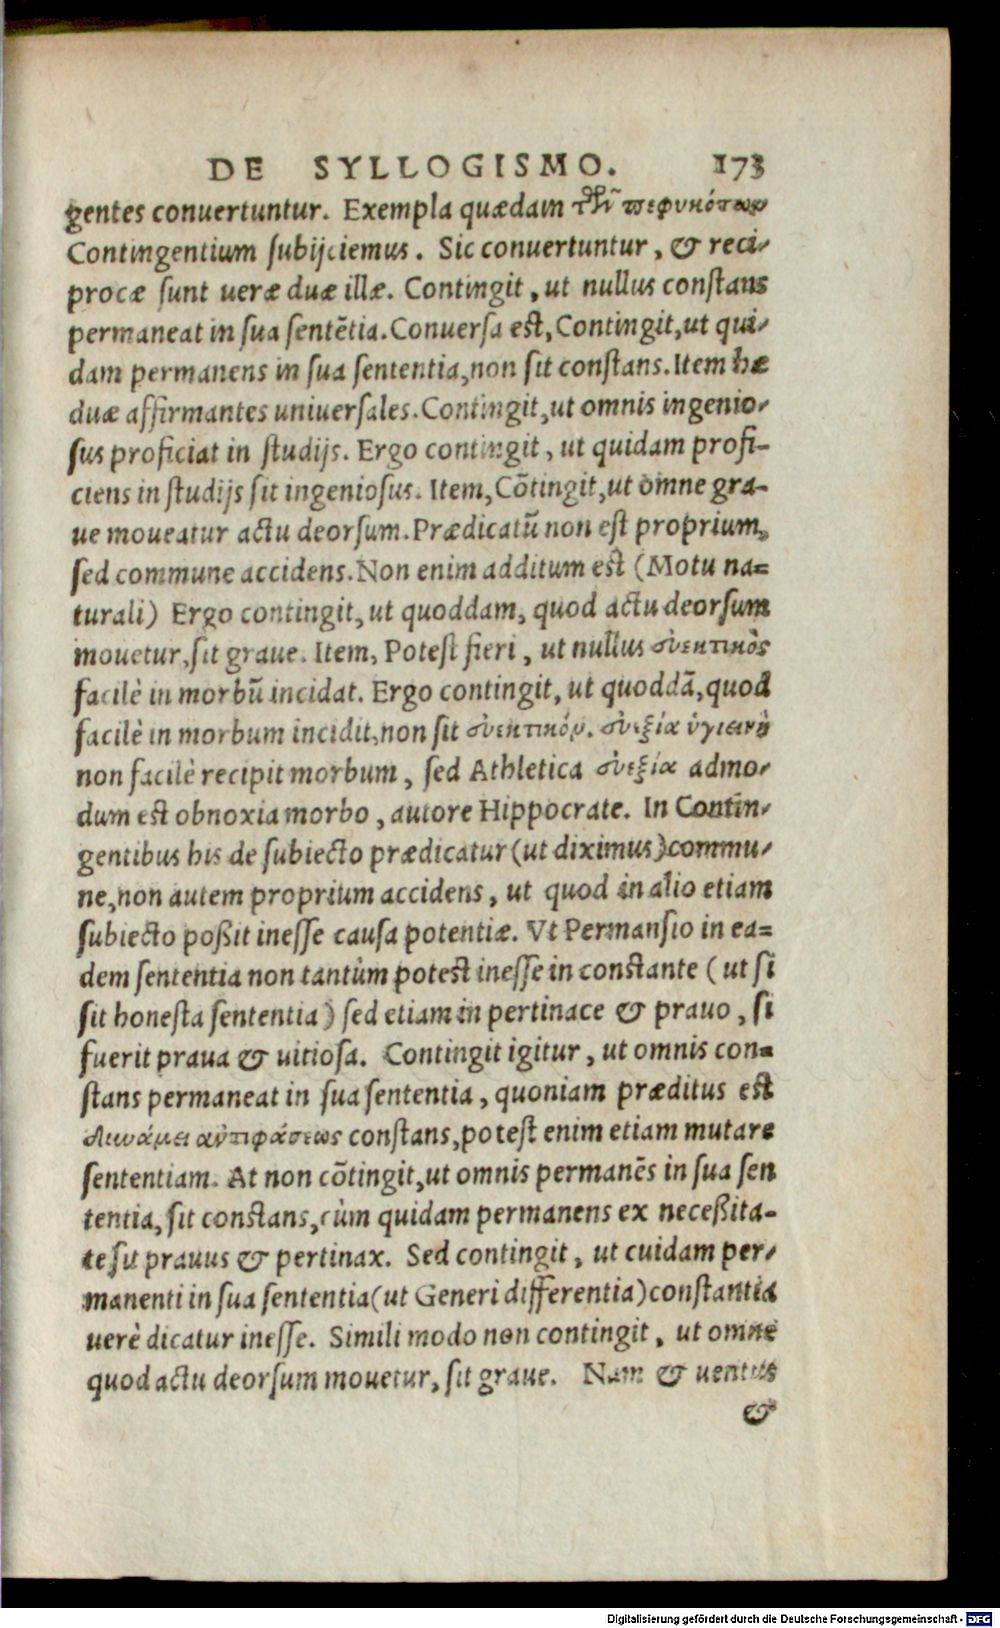 DE SYLLOGISMO. 173
gentes conuertuntur. Exempla quædam τῶν πεφυκότων
Contingentium subijciemus. Sic conuertuntur, & reci-
procæ sunt ueræ duæ illæ. Contingit, ut nullus constans
permaneat in sua sentētia. Conuersa est, Contingit, ut qui-
dam permanens in sua sententia, non sit constans. Item hæ
duæ affirmantes uniuersales. Contingit, ut omnis ingenio-
sus proficiat in studijs. Ergo contingit, ut quidam profi-
ciens in studijs sit ingeniosus. Item, Cōtingit, ut omne gra-
ue moueatur actu deorsum. Prædicatū non est proprium,
sed commune accidens. Non enim additum est (Motu na=
turali) Ergo contingit, ut quoddam, quod actu deorsum
mouetur, sit graue. Item, Potest fieri, ut nullus εὐεκτικὸς
facilè in morbū incidat. Ergo contingit, ut quoddā, quod
facilè in morbum incidit, non sit εὐεκτικόν. εὐεξία ὑγιεινὴ
non facilè recipit morbum, sed Athletica εὐεξία admo-
dum est obnoxia morbo, autore Hippocrate. In Contin-
gentibus his de subiecto prædicatur (ut diximus) commu-
ne, non autem proprium accidens, ut quod in alio etiam
subiecto poßit inesse causa potentiæ. Vt Permansio in ea=
dem sententia non tantùm potest inesse in constante (ut si
sit honesta sententia) sed etiam in pertinace & prauo, si
fuerit praua & uitiosa. Contingit igitur, ut omnis con=
stans permaneat in sua sententia, quoniam præditus est
δυνάμει ἀντιφάσεως constans, potest enim etiam mutare
sententiam. At non cōtingit, ut omnis permanēs in sua sen
tentia, sit constans, cùm quidam permanens ex neceßita-
te sit prauus & pertinax. Sed contingit, ut cuidam per-
manenti in sua sententia (ut Generi differentia) constantia
uerè dicatur inesse. Simili modo non contingit, ut omne
quod actu deorsum mouetur, sit graue. Nam & uentus
&
Digitalisierung gefördert durch die Deutsche Forschungsgemeinschaft - DFG